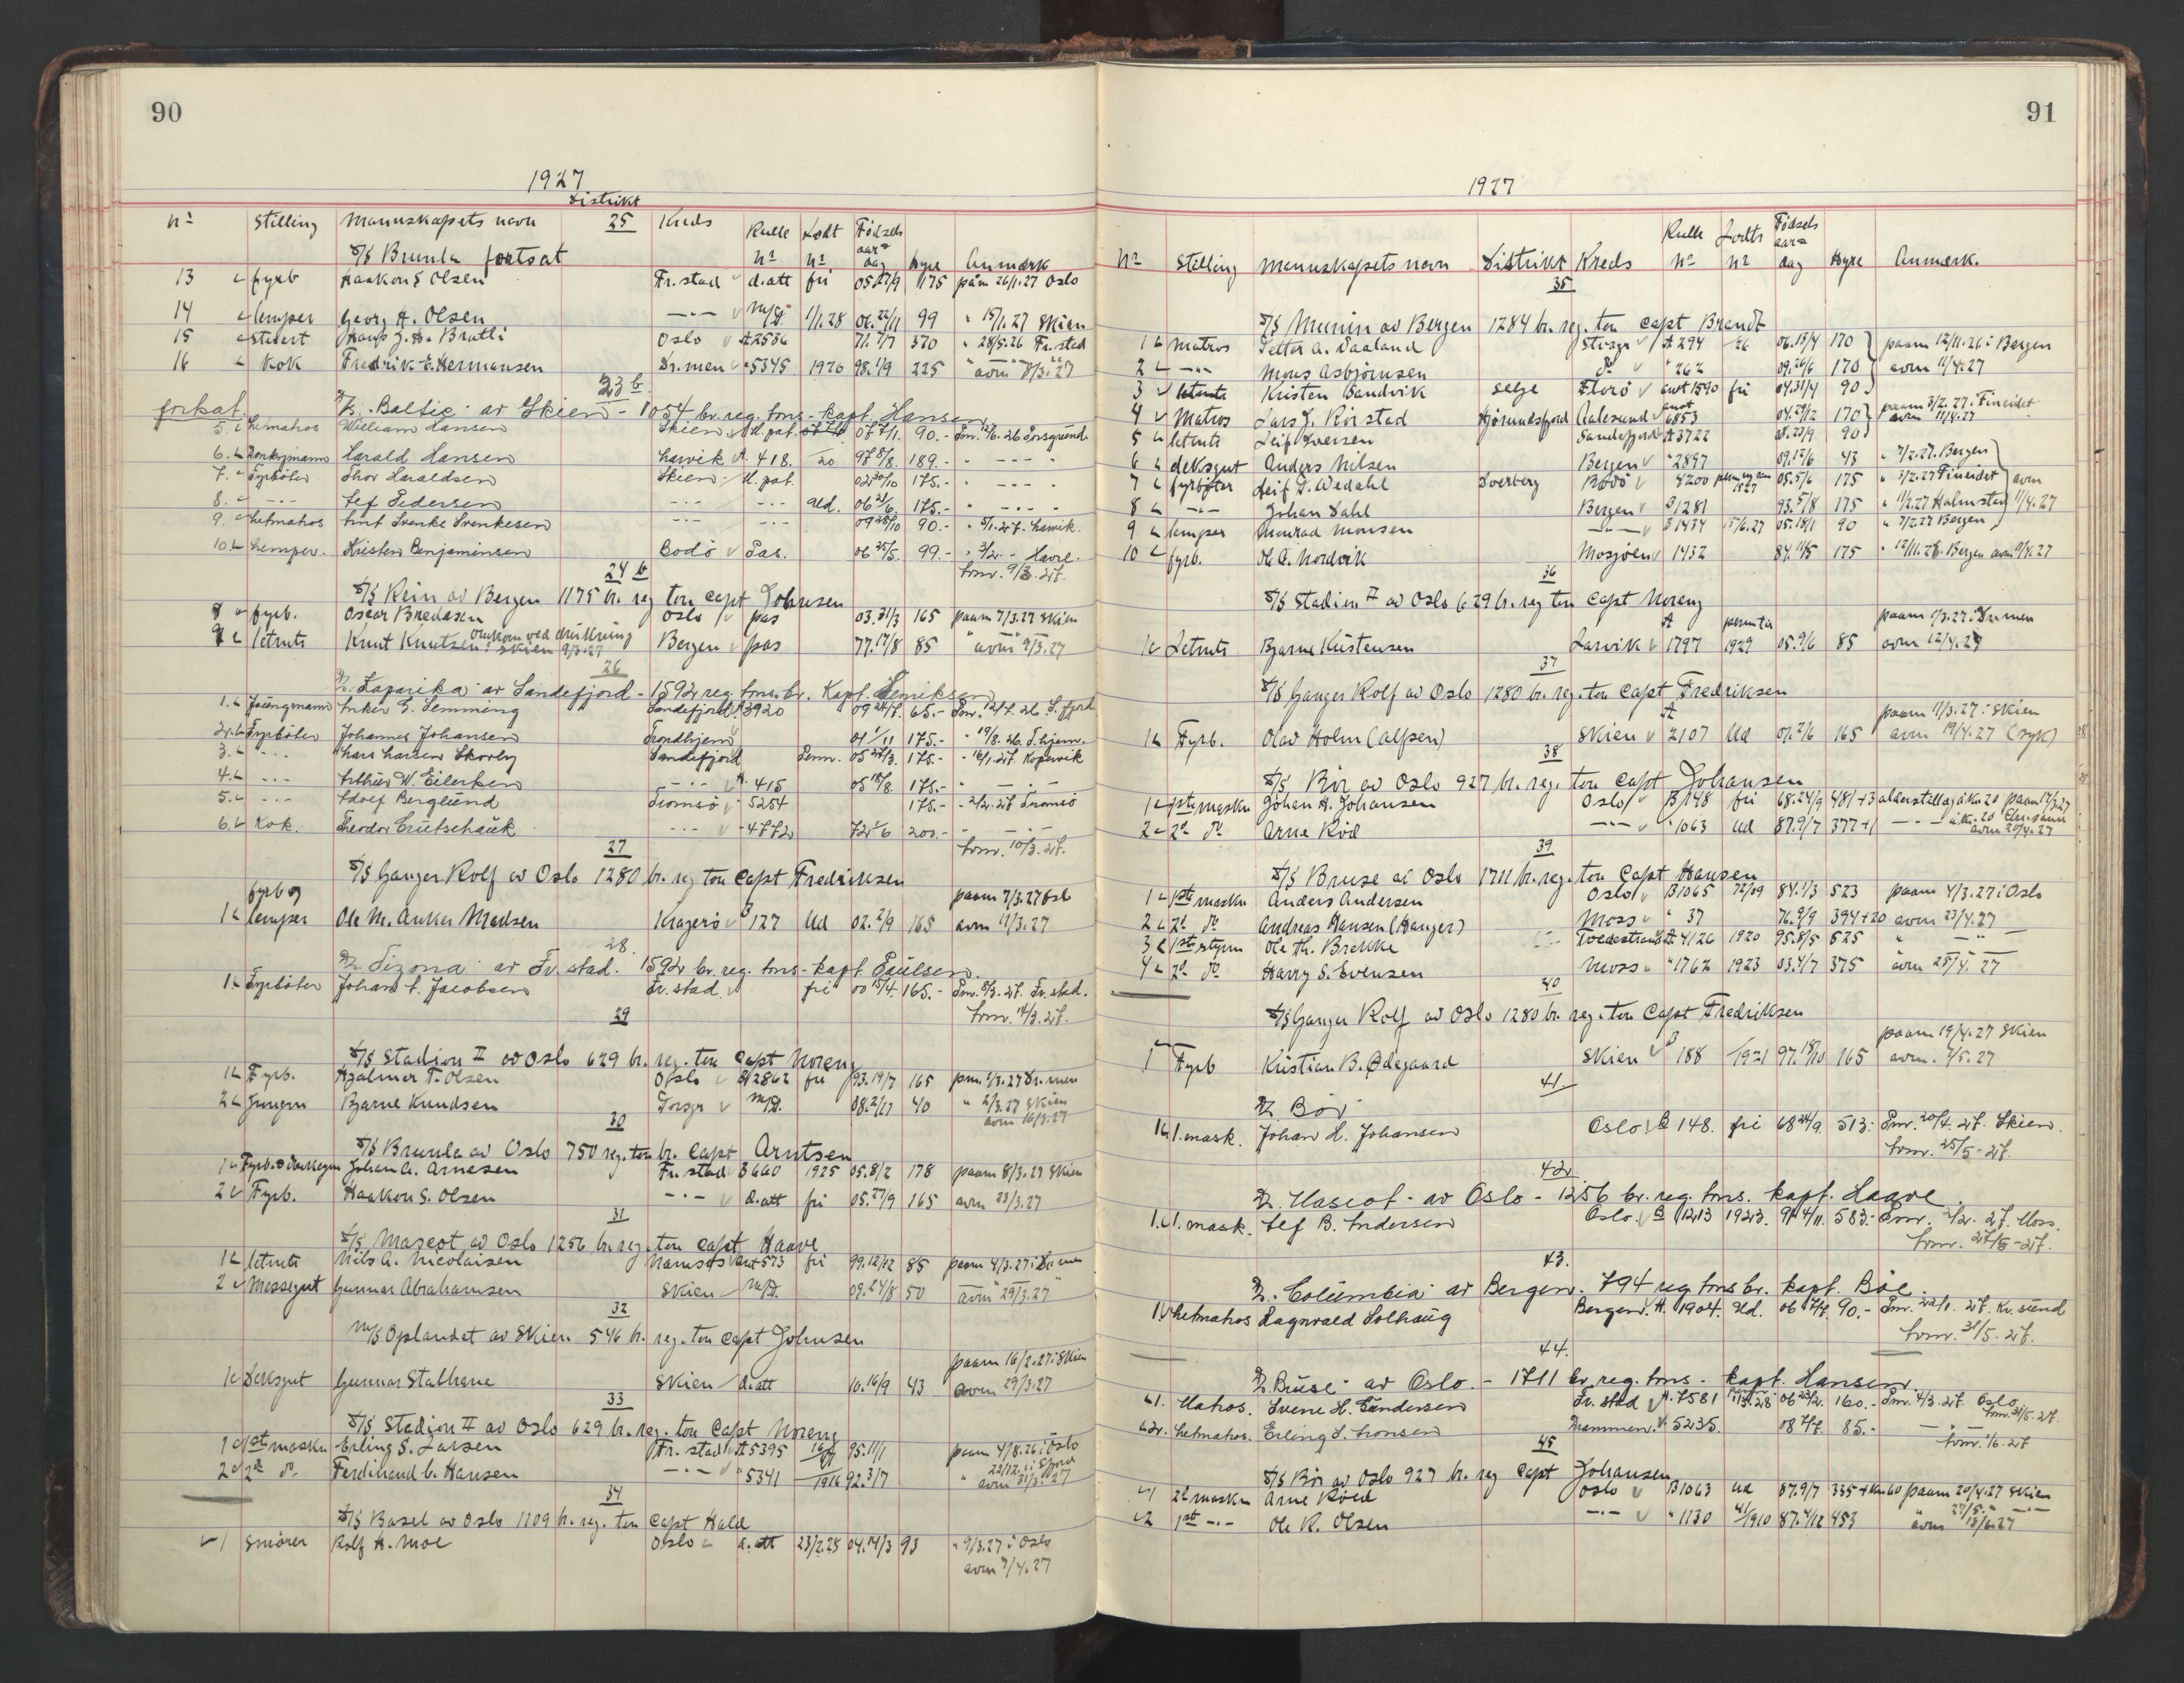 90
1927
Distrikt
No Stilling Mannskapets navn 25 Kreds Rulle No Lodt No Fødsels aar og dag Hyre Anmærk
S/S Brumla fortsat
13 fyrb Haakon S Olsen Fr.stad d.att fri 05 27/9 175 paam 26/1.27 Oslo
14 lemper Georg H. Olsen -"- 1/1.28 06.22/11 99 " 15/1.27 Skien
15 stuert Hans J. H. Bratli Oslo A2536 71.7/7 370 " 28/5.26 Fr.stad
16 kok Fredrik E. Hermansen Dr.men " 5345 1920 98.1/9 225 " avm 8/3.27
23 b
forkat. D/S "Baltic" av Skien - 1054 br.reg.tons - kapt. Hansen
5. Letmatros William Hansen Skien M.pat. 07 7/1. 90.- Pm. 12/6.26 Porsgrund
6. Donkeymann Harald Hansen Larvik A. 418. 20 97 8/8. 189.- " -"- "
7. Fyrböter Thor Haraldsen Skien M.pat. 02 20/10 175.- " -"- "
8. -"- Leif Pedersen -"- -"- Uld. 06 21/6. 175.- " -"- "
9. Letmatros Arnt Svenke Svenkesen -"- -"- 09 28/10 90.- " 5/1.27. Larvik.
10. Lemper. Kristen Benjaminsen Bodö Pas. 06 25/5. 99.- " 3/2. - Havre.
Avm. 9/3.27.
24 b
S/S Rein av Bergen 1175 br. reg ton Capt Johnsen
8 fyrb. Oscar Bredesen Oslo pas 03.31/3 165 paam 7/3.27 Skien
9 letmts Knut Knutsen omkom ved drukning Skien 9/3.27 Bergen pas 77.17/8 85 " avm 9/3.27
26
D/S. Paparika av Sandefjord - 1592 reg.tons.br. Kapt. Henriksen
1. Jüngmann Anker G. Lemming Sandefjord A.3920 09 24/7. 65.- Pm. 12/7.26 S.fjord
2. Fyrböter Johannes Johansen Trondhjem 01 1/11 175.- " 19/8.26. T.hjem.
3. -"- Lars Larsen Skorby Sandefjord Perm. 05 27/3. 175.- " 16/1.27. Kopervik
4. -"- Arthür W. Eilerksen -"- A. 415 05 18/8. 175.- " -"-
5. -"- Adolf Berglünd Tromsö - 5254 175.- " 2/2.27 Tromsö
6. Kok. Theodor Crütschaük -"- - 4772 72 1/6 200.- " -"-
Avm. 10/3.27.
27
S/S Ganger Rolf av Oslo 1280 br. reg ton Capt Fredriksen
1 fyrb og lemper Ole M. Anker Madsen Kragerø B 127 Ud 02.2/9 165 paam 7/3.27 Oslo avm 11/3.27
28
D/S. Tizona av Fr.stad. 1592 br.reg.tons - kapt. Paülsen.
1. Fyrböter Johan A. Jacobsen Fr.stad. fri 00 15/4. 165.- Pm. 8/3.27. Fr.stad.
Avm. 14/3.27.
29
S/S Stadion II av Oslo 629 br. reg. ton Capt Noreng
1 Fyrb. Hjalmar F. Olsen Oslo B12862 fri 93.19/7 165 pm. 1/3.27 Dr.men
2 Jungm Bjarne Knudsen Porsgr 08.2/11 40 " 2/3.27 Skien
avm 16/3.27
30
S/S Brumla av Oslo 750 reg.ton br. Capt Arntsen
1 Fyrb. & Donkeym Johan A. Arnesen Fr.stad B660 1925 05.8/2 178 paam 8/3.27 Skien
2 Fyrb. Haakon S. Olsen -"- d.att fri 05.27/9 165 avm 23/3.27
31
S/S Mascot av Oslo 1256 br.reg.ton Capt Haave
1 letmts Nils A. Nicolaisen Namsos ant 573 fri 99.12/12 85 paam 4/3.27 i Dr.men
2 Messegut Gunnar Abrahamsen Skien 09.24/8 50 avm 29/3.27
32
M/S Oplandet av Skien 546 br. reg. ton Capt Johnsen
1 Deksgut Gunnar Stalhane Skien d.att 10.16/9 43 paam 16/2.27 i Skien avm 29/3.27
33
S/S Stadion II av Oslo 629 br. reg. ton Capt Noreng
1 1st maskn Erling S. Larsen Fr.stad A5395 95.11/1 paam 4/8.26 i Oslo
2 2d do. Ferdinand C. Hansen -"- " 5341 1916 92.3/7 " 22/12. i Sporn avm 31/3.27
34
S/S Basel av Oslo 1109 br. reg. ton Capt Hald
1 Smörer Rolf H. Moe Oslo d.att 23/2.25 04.14/3 93 " 9/3.27 i Oslo
avm 7/4.27
91
1927
No Stilling Mannskapets navn Distrikt Kreds Rulle No Lodts No Fødsels aar og dag Hyre Anmærk.
35
S/S Munin av Bergen 1284 br.reg.ton Capt Brandt
1 Matros Petter A. Vaaland Stvgr A 294 26 06.13/4 170 paam 12/11.26 i Bergen
2 -"- Mons Asbjörnsen do " 262 09.26/6 170 avm 11/4.27
3 letmts Kristen Sandvik Selje Florö ant 1590 fri 04.31/4 90
4 Matros Lars J. Rörstad Hjörundfjord Aalesund anot 6853 04.29/12 170 paam 3/2.27. Fineidet avm 11/4.27
5 letmts Leif Iversen Sandefjord A3722 08.23/9 90
6 deksgut Anders Nilsen Bergen " 2897 09.12/6 43 " 7/2.27. Bergen
7 fyrböter Leif D. Wedahl Sverberg Bodö " 4200 1927 05.5/6 175 " 3/2.27 Fineidet avm
8 -"- Johan Dahl Bergen B1281 93.5/8 175 " 11/2.27 Halmstad 11/4.27
9 lemper Monrad Monsen -"- B 1434 15/6.27 05.18/1 90 " 7/2.27 Bergen
10 fyrb. Ole A. Nordvik Mosjöen 1432 84.11/5 175 " 12/11.26. Bergen avm 11/4.27
36
S/S Stadion II av Oslo 629 br. reg ton Capt Noreng
1 Letmts Bjarne Kristensen Larvik A 1797 1929 05.9/6 85 paam 1/3.27 i Drammen avm 12/4.27
37
S/S Ganger Rolf av Oslo 1280 br. reg. ton Capt Fredriksen
1 Fyrb. Olav Holm (Alfsen) Skien A 2107 Ud 07.2/6 165 paam 11/3.27 i Skien avm 19/4.27 (syk)
38
S/S Bör av Oslo 927 br. reg. ton Capt Johansen
1 1st maskn Johan H. Johansen Oslo B148 fri 68.24/9 481+3 alderstillæg á Kr 20 paam 17/3.27
2 2d do Arne Röd -"- " 1063 Ud 87.9/7 377+1 -"- á Kr. 20 avm 20/4.27
39
S/S Bruse av Oslo 1711 br.reg. ton Capt Hansen
1 1st maskn Anders Andersen Oslo B1065 72/09 84.1/3 523 paam 4/3.27 i Oslo
2 2d do Andreas Hansen (Hanger) Moss " 37 76.9/9 394+20 avm 23/4.27
3 1st styrm Ole Th. Brekke Tvedestrand A 4126 1920 95.8/5 525 " -"-
4 2d do Harry S. Evensen Moss " 1762 1923 03.4/7 375 avm 25/4.27
40
S/S Ganger Rolf av Oslo 1280 br. reg. ton Capt Fredriksen
1 Fyrb Kristian B. Ødegaard Skien B 188 1921 97.18/10 165 paam 19/4.27 Skien avm. 7/5.27
41
D/S Bör
1 1.mask. Johan H. Johansen Oslo B 148. fri 68 24/9. 513.- Pm. 20/4.27. Skien.
Avm. 25/5-27.
42.
D/S. Mascot - av Oslo - 1256 br.reg.tons. kapt. Haave.
1. 1.mask. Leif B. Andersen Oslo. B 1213 1923. 97 4/11. 583.- Pm. 2/2. 27. Moss.
Avm. 27/5-27.
43.
D/S. Colümbia av Bergen. 794 reg.tons br. kapt. Böe.
1. Letmatros Ragnvald Solhaüg Bergen. A. 1904. Uld. 06 7/7. 90.- Pm. 22/1. 27. Kr.sünd
Avm. 31/5.27.
44.
D/S. Brüse av Oslo. - 1711 br.reg.tons. - kapt. Hansen.
1. Matros. Svene H. Gündersen Fr.stad A. 7581 06 23/2. 160.- Pm. 4/3.27. Oslo
Avm. 31/5.27.
2. Letmatros. Erling L. Aronsen Drammen. A. 5235. 08 7/7. 85.- -"-
Avm. 1/6.27
45
S/S Bör av Oslo 927 br. reg Capt Johansen
1 2d maskn Arne Röed Oslo B1063 Ud 87.9/7 335 + Kr 60 paam 20/4.27 Skien
2 1st -"- Ole R. Olsen -"- " 1130 41/1910 87.4/12 453 " 27/5. -"-
avm 13/6.27